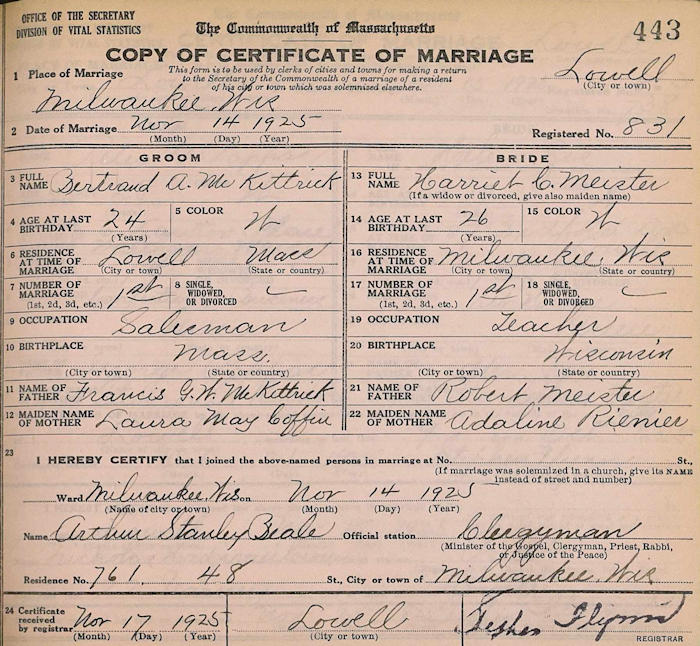 OFFICE OF THE SECRETARY
DIVISION OF VITAL STATISTICS
The Commonwealth of Massachusetts
443
COPY OF CERTIFICATE OF MARRIAGE
This form is to be used by clerks of cities and towns for making a return
to the Secretary of the Commonwealth of a marriage of a resident
of his city or town which was solemnized elsewhere.
Lowell
(City or town)
1 Place of Marriage
Milwaukee, Wis
2 Date of Marriage Nov 14 1925
(Month) (Day) (Year)
Registered No. 831
GROOM
3 FULL NAME Bertrand A. McKittrick
4 AGE AT LAST BIRTHDAY 24
(Years)
5 COLOR W
6 RESIDENCE AT TIME OF MARRIAGE Lowell Mass
(City or town) (State or country)
7 NUMBER OF MARRIAGE 1st
(1st, 2d, 3d, etc.)
8 SINGLE, WIDOWED, OR DIVORCED
9 OCCUPATION Salesman
10 BIRTHPLACE Mass.
(City or town) (State or country)
11 NAME OF FATHER Francis G. W. McKittrick
12 MAIDEN NAME OF MOTHER Laura May Coffin
BRIDE
13 FULL NAME Harriet C. Meister
(If a widow or divorced, give also maiden name)
14 AGE AT LAST BIRTHDAY 26
(Years)
15 COLOR W
16 RESIDENCE AT TIME OF MARRIAGE Milwaukee, Wis
(City or town) (State or country)
17 NUMBER OF MARRIAGE 1st
(1st, 2d, 3d, etc.)
18 SINGLE, WIDOWED, OR DIVORCED
19 OCCUPATION Teacher
20 BIRTHPLACE Wisconsin
(City or town) (State or country)
21 NAME OF FATHER Robert Meister
22 MAIDEN NAME OF MOTHER Adaline Rienier
23
I HEREBY CERTIFY that I joined the above-named persons in marriage at No. St.,
(If marriage was solemnized in a church, give its NAME
instead of street and number)
Ward Milwaukee, Wis on Nov 14 1925
(Name of city or town) (Month) (Day) (Year)
Name Arthur Stanley Beale Official station Clergyman
(Minister of the Gospel, Clergyman, Priest, Rabbi,
or Justice of the Peace)
Residence No. 761. 48 St., City or town of Milwaukee, Wis
24 Certificate received by registrar Nov 17 1925
(Month) (Day) (Year)
Lowell
(City or town)
Flynn
REGISTRAR